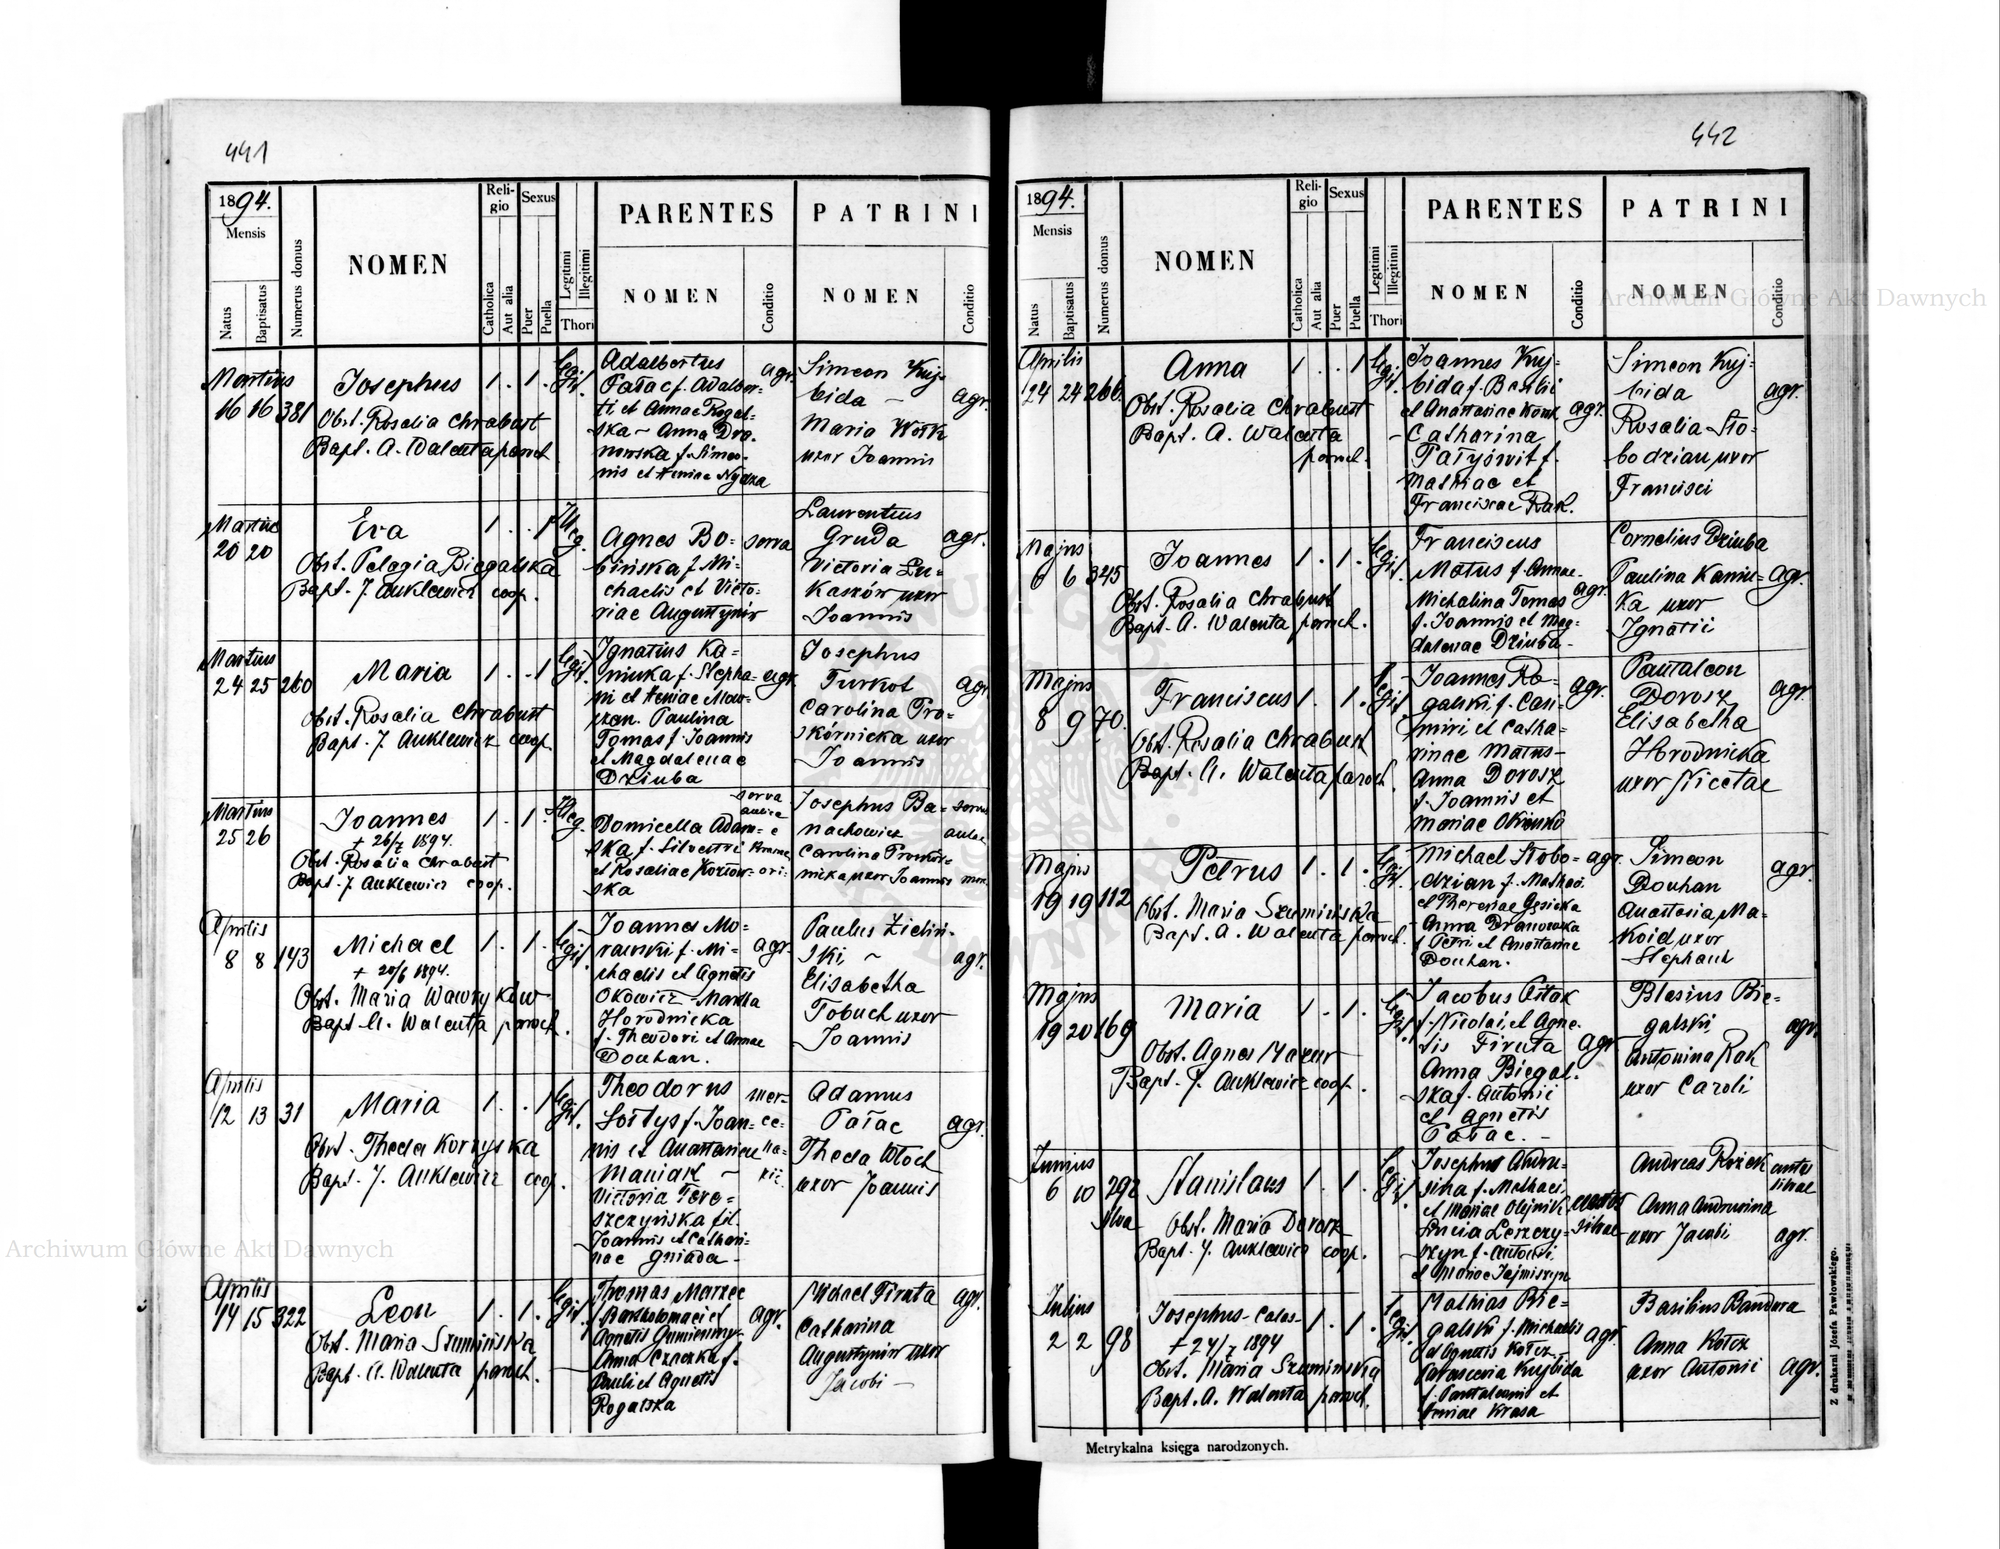 441
1894.
Mensis
Natus
Baptisatus
Numerus domus
NOMEN
Reli-
gio
Catholica
Aut alia
Sexus
Puer
Puella
Legitimi
Illegitimi
Thori
PARENTES
NOMEN
Conditio
PATRINI
NOMEN
Conditio
Martius
16 16 381
Josephus
1 . 1 .
Legit.
Obst. Rosalia Chrabust
Bapt. A. Walenta paroch
Adalbertus
Pałac f. Adalber-
ti et Annae Rogal-
ska ~ Anna Dro-
nowska f. Simeo-
nis et Nydza
agr.
Simeon Kuj-
bida ~
Maria Wośk
uxor Joannis
agr.
Martius
20 20
Eva
1 . . 1
Illeg.
Obst. Pelagia Biegalska
Bapt. J. Anklewicz coop.
Agnes Bo-
bińska f. Mi-
chaelis et Victo-
riae Augustynów
serva
Laurentius
Gruda
Victoria Lu-
kasków uxor
Joannis
agr.
Martius
24 25 260
Maria
1 . . 1
Legit.
Obst. Rosalia Chrabust
Bapt. J. Anklewicz coop.
Ignatius Ka-
niuka f. Stepha-
ni et
Paulina
Tomas f. Joannis
et Magdalenae
Dziuba
agr.
Josephus
Turkot
Carolina Pro-
skórnicka uxor
Joannis
agr.
Martius
25 26
Joannes
+ 26/7 1894.
1 . 1 .
Illeg.
Obst. Rosalia Chrabust
Bapt. J. Anklewicz coop.
Domicella Adam-
ska f. Silvestri
et Rosaliae Kozłow-
ska
serva
Josephus Ba-
nachowicz
Carolina Proskór-
nicka uxor Joannis
Aprilis
8 8 143
Michael
+ 20/6 1894.
1 . 1 .
Legit.
Obst. Maria Wawryków
Bapt. A. Walenta paroch.
Joannes Mo-
rawski f. Mi-
chaelis et Agnetis
Okowicz - Martha
Horodnicka
f. Theodori et Annae
Douhan.
agr.
Paulus Zieliń-
ski ~
Elisabetha
Tobuch uxor
Joannis
agr.
Aprilis
12 13 31
Maria
1 . . 1
Legit.
Obst. Theda Korzyska
Bapt. J. Anklewicz coop.
Theodorus
Sołtys f. Joan-
nis et Anastasiae
Maniak ~
Victoria Tere-
szczyńska fil.
Joannis et Cathari-
nae Gniada -
mer-
ce-
na-
rii.
Adamus
Pałac
Theda Włoch
uxor Joannis
agr.
Aprilis
14 15 322
Leon
1 . 1 .
Legit.
Obst. Maria Szumińska
Bapt. A. Walenta paroch.
Thomas Marzec
f. Bartholomaei et
Agnetis Gumienny-
Anna Czaczka f.
Pauli et Agnetis
Rogalska
agr.
Michael Firuta
Catharina
Augustynów uxor
Jacobi -
agr.
442
1894.
Mensis
Natus
Baptisatus
Numerus domus
NOMEN
Reli-
gio
Catholica
Aut alia
Sexus
Puer
Puella
Legitimi
Illegitimi
Thori
PARENTES
NOMEN
Conditio
PATRINI
NOMEN
Conditio
Aprilis
24 24 266.
Anna
1 . . 1
Legit.
Obst. Rosalia Chrabust
Bapt. A. Walenta
paroch.
Joannes Kuj-
bida f. Basilii
et Anastasiae
Catharina
Patyjewit f.
Mathiae et
Franciscae Rak.
agr.
Simeon Kuj-
bida
Rosalia Sło-
bodzian uxor
Francisci
agr.
Majus
6 6 345
Joannes
1 . 1 .
Legit.
Obst. Rosalia Chrabust
Bapt. A. Walenta paroch.
Franciscus
Matus f. Annae.
Michalina Tomas
f. Joannis et Mag-
dalenae Dziuba -
agr.
Cornelius Dziuba
Paulina Kaniu-
ka uxor
Ignatii
agr.
Majus
8 9 70.
Franciscus
1 . 1 .
Legit.
Obst. Rosalia Chrabust
Bapt. A. Walenta paroch.
Joannes Ro-
galski f. Casi-
miri et Catha-
rinae Matus -
Anna Dorosz
f. Joannis et
Mariae Okienko
agr.
Pantaleon
Dorosz
Elisabetha
Horodnicka
uxor Nicetae
agr.
Majus
19 19 112
Petrus
1 . 1 .
Legit.
Obst. Maria Szumińska
Bapt. A. Walenta paroch.
Michael Słobo-
dzian f. Mathaei
et Theresiae Gęsicka
Anna Dranowska
f. Petri et Anastasiae
Douhan.
agr.
Simeon
Douhan
Anastasia Ma-
koid uxor
Stephani
agr.
Majus
19 20 169
Maria
1 . 1 .
Legit.
Obst. Agnes Mazur
Bapt. J. Anklewicz coop.
Jacobus Ośtak
f. Nicolai et Agne-
tis Firuta
Anna Biegal-
ska f. Antonii
et Agnetis
Pałac. -
agr.
Blasius Bie-
galski
Antonina Rak
uxor Caroli
agr.
Junius
6 10 292
Stanislaus
1 . 1 .
Legit.
Obst. Maria Dorosz
Bapt. J. Anklewicz coop.
Josephus Andru-
sina f. Mathaei
et Mariae Olejnik
Lucia Leszczy-
szyn f. Antonii
et Mariae
Andreas Rożek
Anna Andrusina
uxor Jacobi
agr.
Julius
2 2 98
Josephus-Calas-
+ 24/7 1894
1 . 1 .
Legit.
Obst. Maria Szumińska
Bapt. A. Walenta paroch.
Mathias Bie-
galski f. Michaelis
et Agnetis Kołcz -
Parascevia Kujbida
f. Pantaleonis et
Xeniae Krasa
agr.
Basilius Bandura
Anna Kołcz
uxor Antonii
agr.
Metrykalna księga narodzonych.
Z drukarni Józefa Pawłowskiego.
Archiwum Główne Akt Dawnych
Archiwum Główne Akt Dawnych